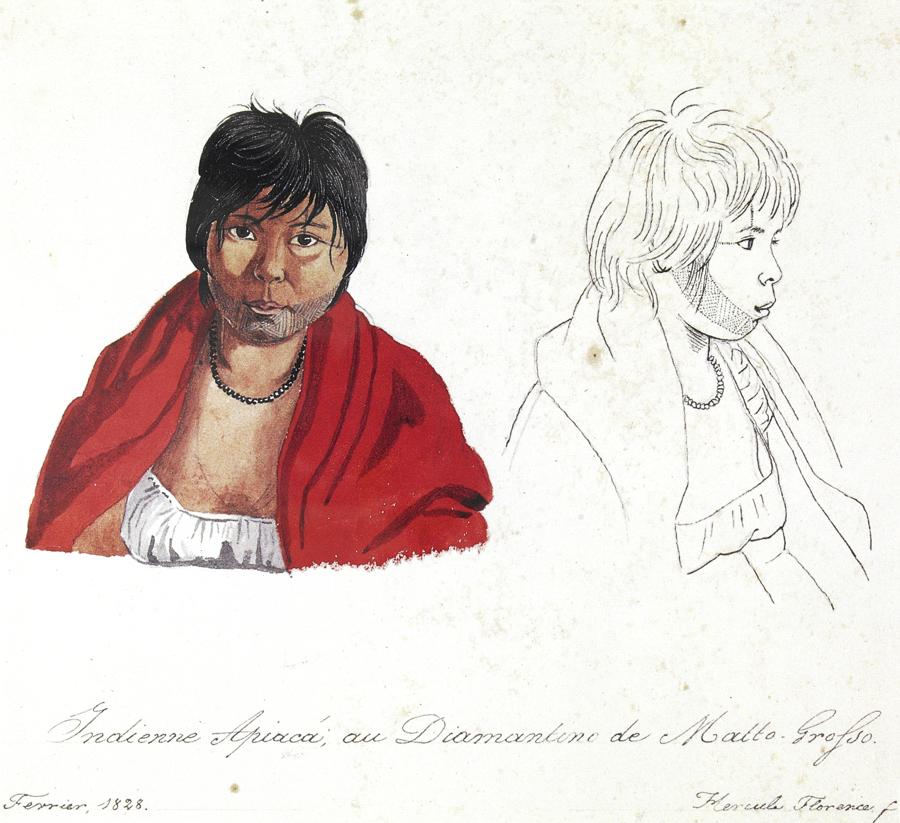 Indienne Apiacá, au Diamantino de Matto-Grosso.
Fevrier, 1828.
Hercule Florence f